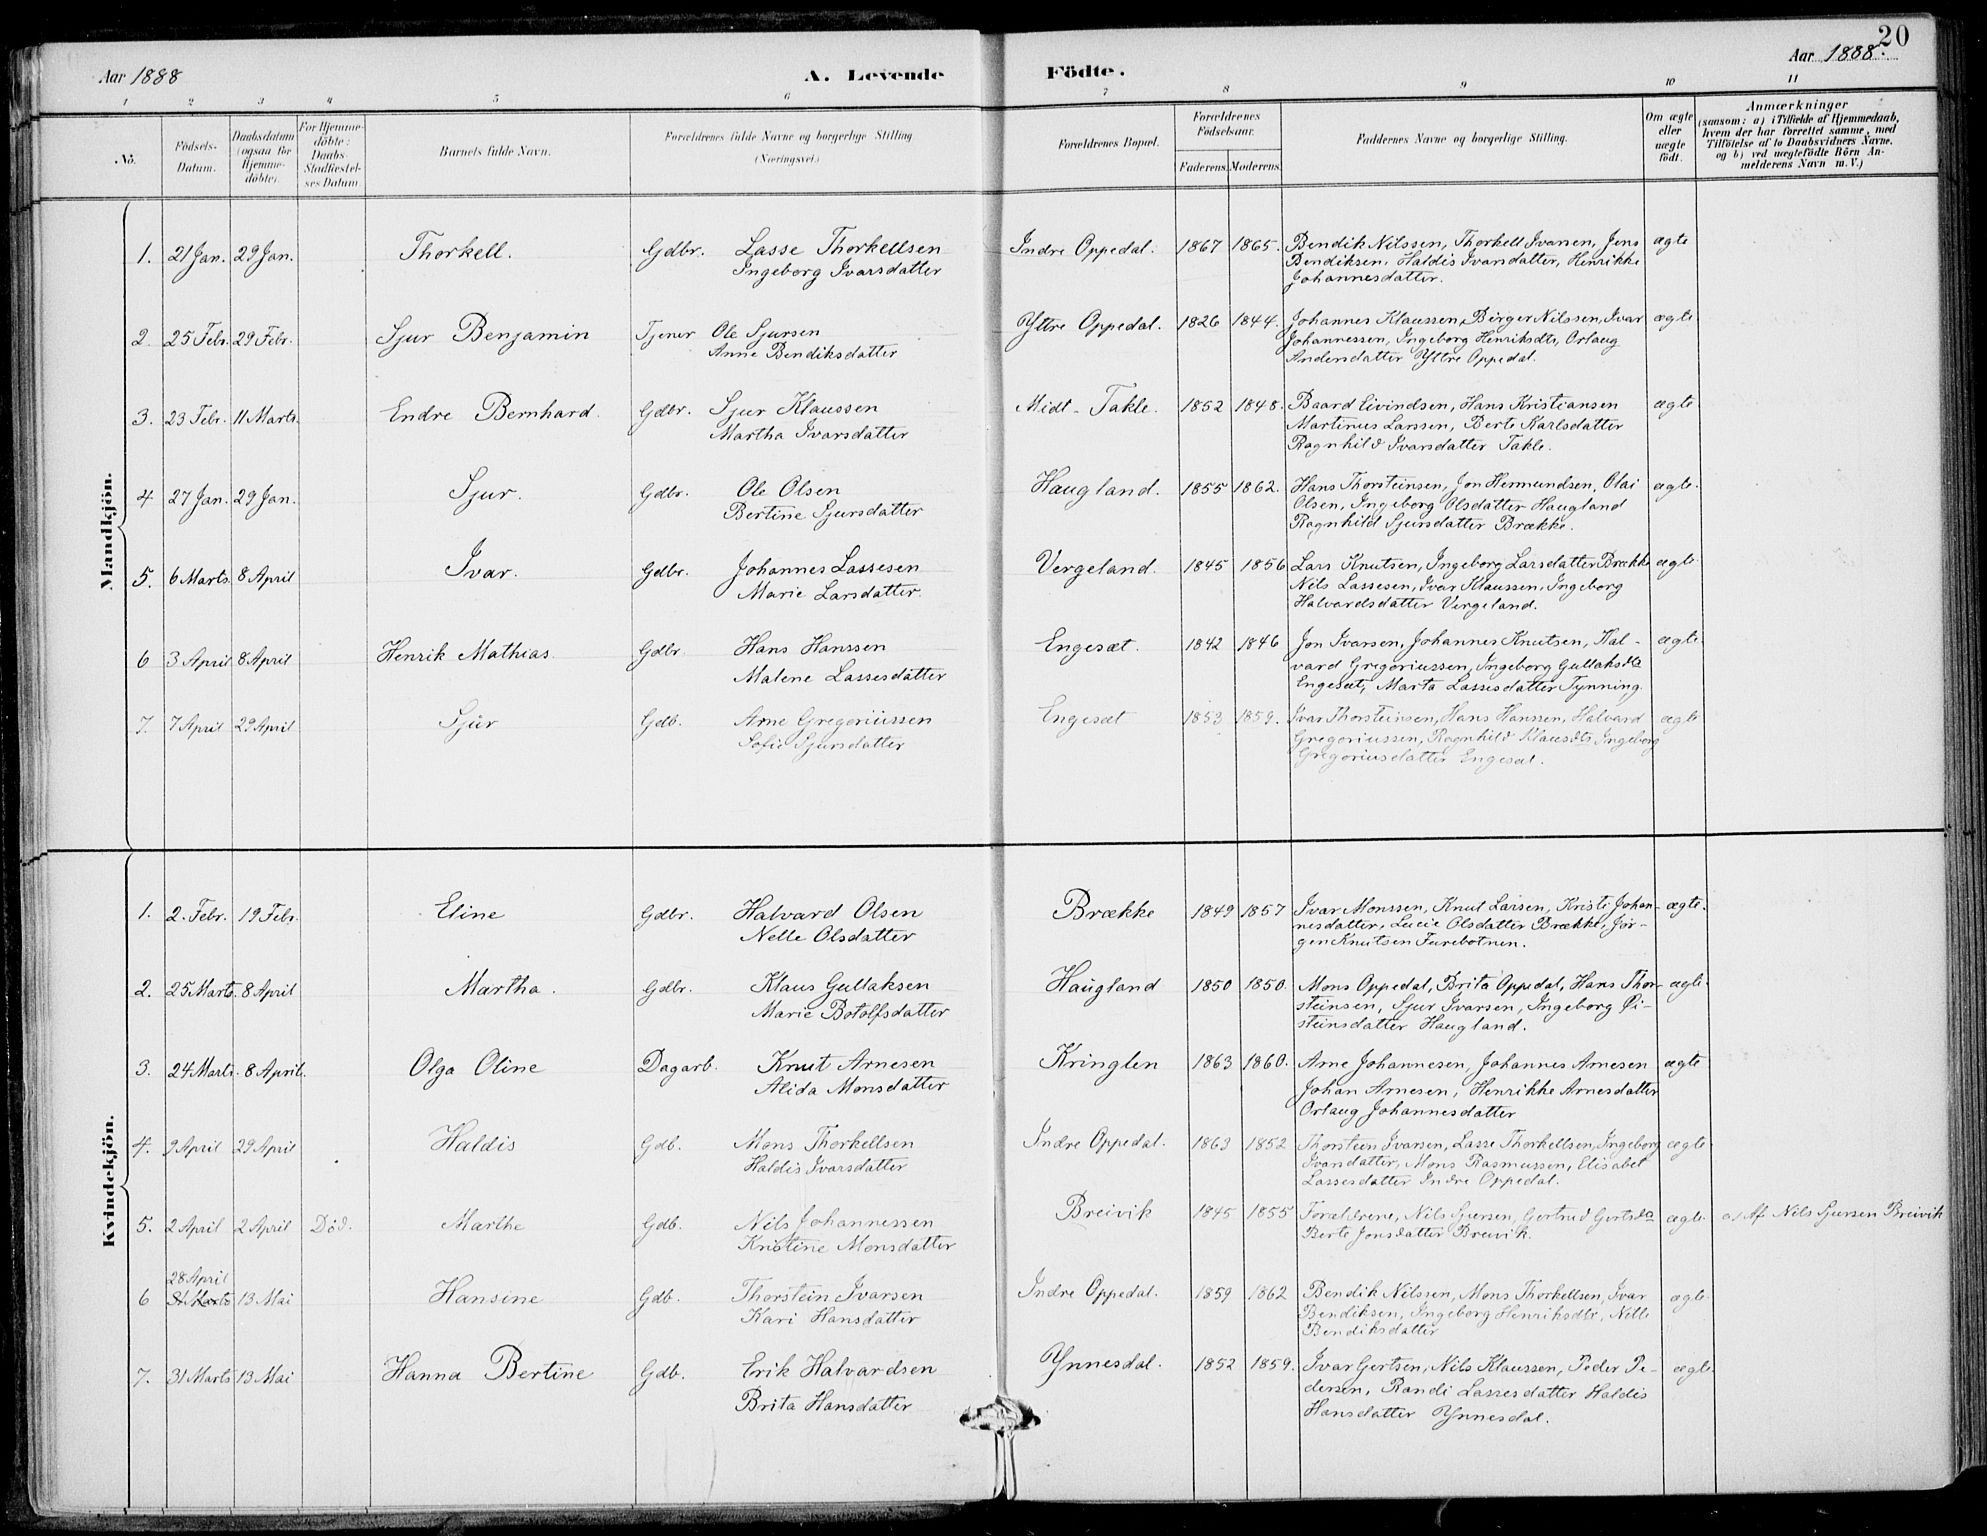 20
Aar 1888
A. Levende Födte.
Aar 1888.
1 2 3 4 5 6 7 8 9 10 11
No.
Födsels-Datum.
Daabsdatum (ogsaa for Hjemme-döbte).
For Hjemme-döbte: Daabs-Stadfæstel-ses Datum.
Barnets fulde Navn.
Forældrenes fulde Navne og borgerlige Stilling
(Næringsvei.)
Forældrenes Bopæl.
Forældrenes Födselsaar.
Faderens. Moderens.
Faddernes Navne og borgerlige Stilling.
Om ægte eller uægte födt.
Anmærkninger
(saasom: a) i Tilfælde af Hjemmedaab,
hvem der har forrettet samme, med
Tilföielse af to Daabsvidners Navne,
og b) ved uægtefödte Börn An-
melderens Navn m. V.)
Mandkjön.
1. 21 Jan. 29 Jan. Thorkell. Gdbr. Lasse Thorkellsen Indre Oppedal. 1867 1865. Bendik Nilssen, Thorkell Ivarsen, Jens ægte
Ingeborg Ivarsdatter Bendiksen, Haldis Ivarsdatter, Henrikke
Johannesdatter.
2. 25 Febr. 29 Febr. Sjur Benjamin Tjener Ole Sjursen Yttre Oppedal. 1826 1844. Johannes Klaussen, Börger Nilssen, Ivar ægte
Anne Bendiksdatter Johannessen, Ingeborg Henriksdtr, Orlaug
Andersdatter Yttre Oppedal.
3. 23 Febr. 11 Marts. Endre Bernhard. Gdbr. Sjur Klaussen Midt-Takle. 1852 1848. Baard Eivindsen, Hans Kristiansen ægte
Martha Ivarsdatter Martinus Larssen, Berte Karlsdatter
Ragnhild Ivarsdatter Takle.
4 27 Jan. 29 Jan. Sjur. Gdbr. Ole Olsen Haugland. 1855 1862. Hans Thorsteinsen, Jon Hermundsen, Olai ægte.
Bertine Sjursdatter Olsen, Ingeborg Olsdatter Haugland
Ragnhild Sjursdatter Brække.
5. 6 Marts. 8 April Ivar. Gdbr. Johannes Lassesen Vergeland. 1845 1856 Lars Knutsen, Ingeborg Larsdatter Brække ægte
Marie Larsdatter. Nils Lassesen, Ivar Klaussen, Ingeborg
Halvardsdatter Vergeland.
6 3 April 8 April Henrik Mathias. Gdbr. Hans Hanssen Engesæt. 1842 1846 Jon Ivarsen, Johannes Knutsen, Hal- ægte
Malene Lassesdatter vard Gregoriussen, Ingeborg Gullaksdtr
Engesæt, Marta Lassesdatter Tynning.
7. 7 April 29 April Sjur Gdb. Arne Gregoriussen Engesæt 1853 1859. Ivar Thorsteinsen, Hans Hanssen, Halvard ægte
Sofie Sjursdatter Gregoriussen, Ragnhild Klausdtr, Ingeborg
Gregoriusdatter Engesæt.
Kvindekjön.
1. 2. Febr. 19 Febr. Eline Gdbr. Halvard Olsen Brække 1849 1857 Ivar Monssen, Knut Larsen, Kristi Johan- ægte.
Nelle Olsdatter nesdatter, Lucie Olsdatter Brække, Jör-
gen Knutsen Furebotnen.
2. 25 Marts. 8 April Martha. Gdbr. Klaus Gullaksen Haugland 1850 1850. Mons Oppedal, Brita Oppedal, Hans Thor- ægte.
Marie Botolfsdatter steinsen, Sjur Ivarsen, Ingeborg Öi-
steinsdatter Haugland.
3. 24 Marts. 8 April. Olga Oline Dagarb. Knut Arnesen Kringlen 1863 1860. Arne Johannesen, Johannes Arnesen ægte
Alida Monsdatter Johan Arnesen, Henrikke Arnesdatter
Orlaug Johannesdatter
4. 9 April 29 April Haldis Gdb. Mons Thorkellsen Indre Oppedal. 1863 1852 Thorstein Ivarsen, Lasse Thorkellsen, Ingeborg ægte
Haldis Ivarsdatter Ivarsdatter, Mons Rasmussen, Elisabet
Lassesdatter Indre Oppedal.
5. 2 April 2 April Död. Marthe Gdb. Nils Johannessen Breivik 1845 1855 Forældrene, Nils Sjursen, Gertrud Gertsdtr ægte. a) Af Nils Sjursen Breivik
Kristine Monsdatter Berte Jonsdatter Breivik.
28 April
6 31 Marts 13 Mai Hansine Gdb. Thorstein Ivarsen Indre Oppedal. 1859 1862 Bendik Nilssen, Mons Thorkellsen, Ivar ægte.
Kari Hansdatter Bendiksen, Ingeborg Henriksdtr, Nelle
Bendiksdatter
7. 31 Marts 13 Mai Hanna Bertine Gdb. Erik Halvardsen Ynnesdal. 1852 1859. Ivar Gertsen, Nils Klaussen, Peder Pe- ægte.
Brita Hansdatter dersen, Randi Lassesdatter Haldis
Hansdatter Ynnesdal.